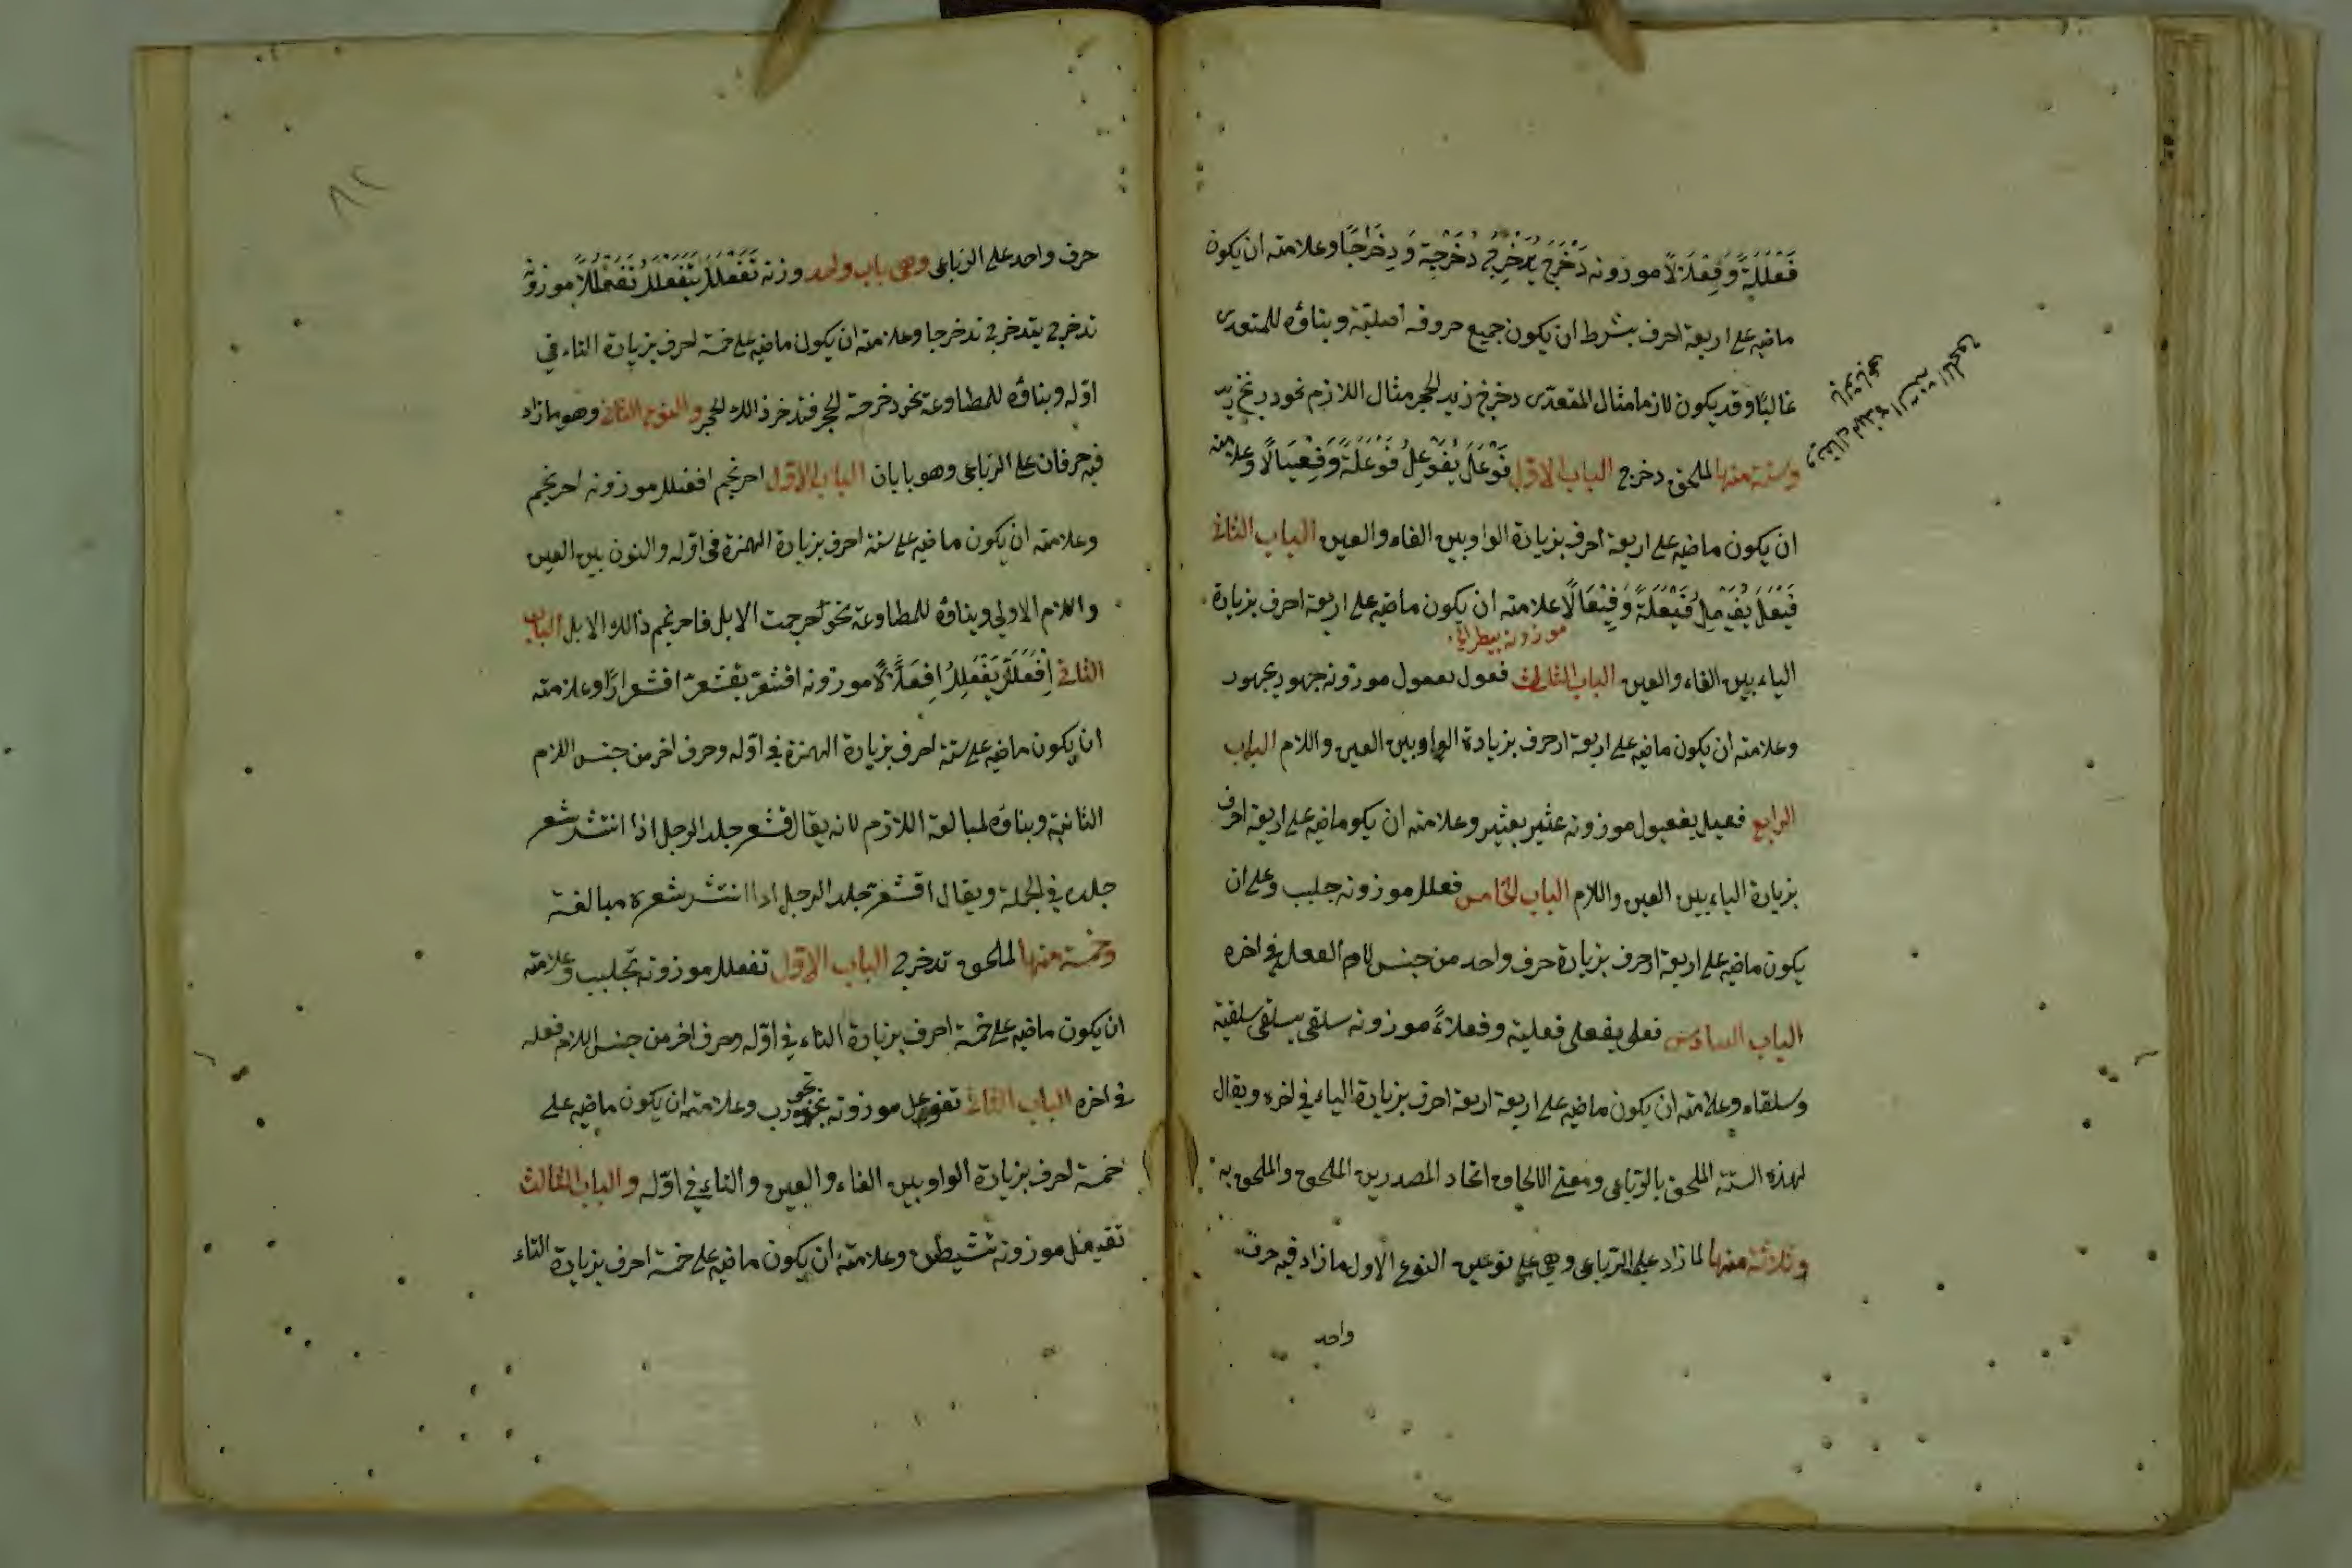 فَعْلَلَةً وَفِعْلَالًا موزونه دَخْرَجَ يُدَخْرِجُ دَخْرَجَة وَدِخْرَاجًا وعلامته ان يكون
ماضيه على اربعة احرف بشرط ان يكون جميع حروفه اصلية وبناؤه للمتعدى
غالبًا وقد يكون لازما مثال المتعدّى دخرج زيد الحجر مثال اللازم نحو دربخ زيد
وستة منها لملحق دخرج الباب الاوّل فَوْعَلَ يُفَوْعِلُ فَوْعَلَةً وَفِيعَالًا وعلامته
ان يكون ماضيه على اربعة احرف بزيادة الواو بين الفاء والعين الباب الثانى
فَيْعَلَ يُفَيْعِلُ فَيْعَلَةً وَفِيْعَالًا علامته ان يكون ماضيه على اربعة احرف بزيادة
موزونه بيطر
الياء بين الفاء والعين الباب الثالث فعول يفعول موزونه جهور يجهور
وعلامته ان يكون ماضيه على اربعة احرف بزيادة الواو بين العين واللام الباب
الرابع فعيل يفعيول موزونه عثير يعثير وعلامته ان يكو ماضيه على اربعة احرف
بزيادة الياء بين العين واللام الباب الخامس فعلل موزونه جلبب وعلى ان
يكون ماضيه على اربعة احرف بزيادة حرف واحد من جنس لام الفعل فى اخره
الباب السادس فعلى يفعلى فعلية وفعلاءً موزونه سلقى يسلقى سلقية
وسلقاء وعلامته ان يكون ماضيه على اربعة اربعة احرف بزيادة الياء فى اخره ويقال
لهذه الستة الملحق بالرّباعى ومعنى الالحاق اتحاد المصدرين الملحق والملحق به
وثلاثة منها لما زاد على الرّباعى وهى على نوعين النوع الاول ما زاد فيه حرف
واحد
٨٢
حرف واحد على الرّباعى وهى باب واحد وزنه تَفَعْلَلَ يَتَفَعْلَلُ تَفَعْلُلًا موزونه
تدخرج يتدخرج تدخرجا وعلامته ان يكون ماضيه على خمسة احرف بزيادة التاء فى
اوّله وبناؤه للمطاوعة نحو دخرجت الحجر فتدخرج ذالك الحجر والنوع الثانى وهو ما زاد
فيه حرفان على الرّباعى وهو بابان الباب الاوّل احرنجم افعنلل موزونه احرنجم
وعلامته ان يكون ماضيه على ستة احرف بزيادة الهمزة فى اوّله والنون بين العين
واللام الاولى وبناؤه للمطاوعة نحو حرجمت الابل فاحرنجم ذالك الابل الباب
الثانى اِفْعَلَلَّ يَفْعَلِلُّ اِفْعِلَّالًا موزونه اقشعرّ يقشعرّ اقشعرارًا وعلامته
ان يكون ماضيه على ستة احرف بزيادة الهمزة فى اوّله وحرف اخر من جنس اللام
الثانية وبناؤه لمبالغة اللازم لانه يقال قشعر جلد الرجل اذا انتشر شعر
جلده فى الجملة ويقال اقشعرّ جلد الرجل اذا انتشر شعره مبالغة
وخمسة منها لملحق تدخرج الباب الاوّل تفعلل موزونه تجلبب وعلامته
ان يكون ماضيه على خمسة احرف بزيادة التاء فى اوّله وحرف اخر من جنس اللام فعله
فى اخره الباب الثانى تفوعل موزونه تجورب وعلامته ان يكون ماضيه على
خمسة احرف بزيادة الواو بين الفاء والعين والتاء فى اوّله والباب الثالث
تفيعل موزونه تشيطن وعلامته ان يكون ماضيه على خمسة احرف بزيادة التاء